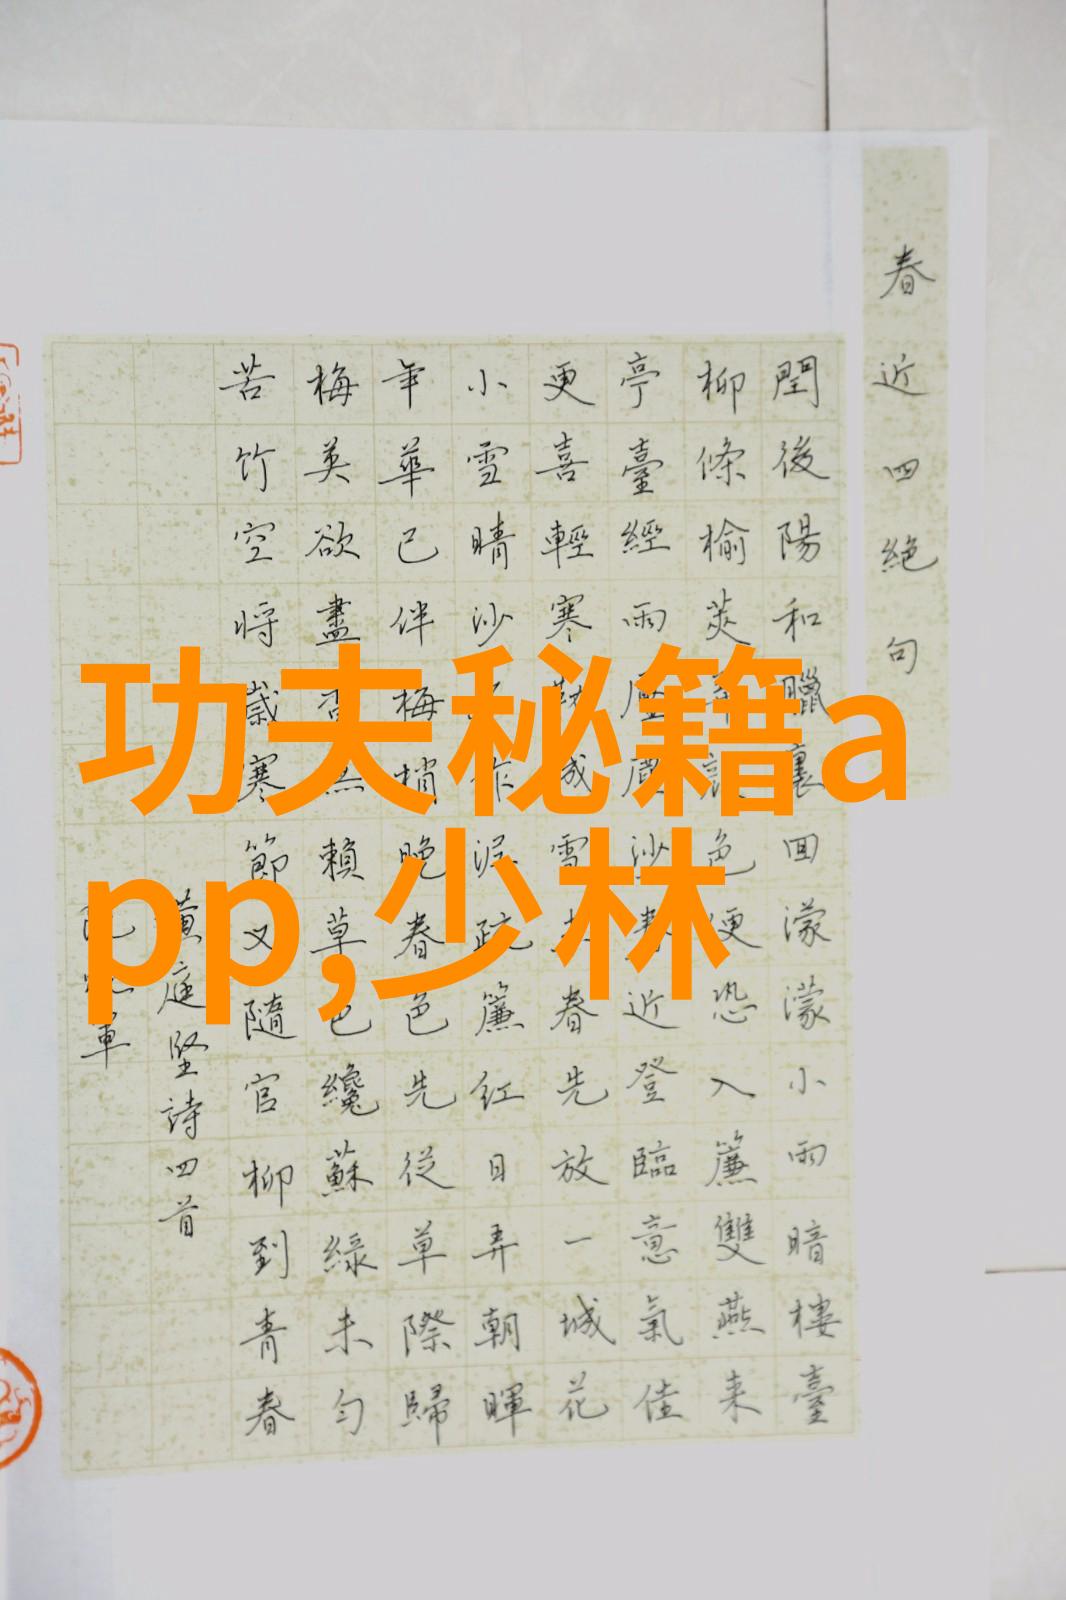 功夫秘籍a
pp,少林
春近四絕句
閏後陽和臘裏回濛濛小雨暗樓臺
柳條榆莢色便恐入簾雙燕来
亭臺經雨壓沙近登臨意氣佳
更喜輕寒勒成雪春先放一城花
小雪晴沙作泥疏簾紅日弄朝暉
年華已伴梅梢晚春色先從草際歸
梅英欲盡香無賴草色纔蘇綠未勻
苦竹空將歲寒節又隨官柳到青春
黃庭堅詩四首
軍